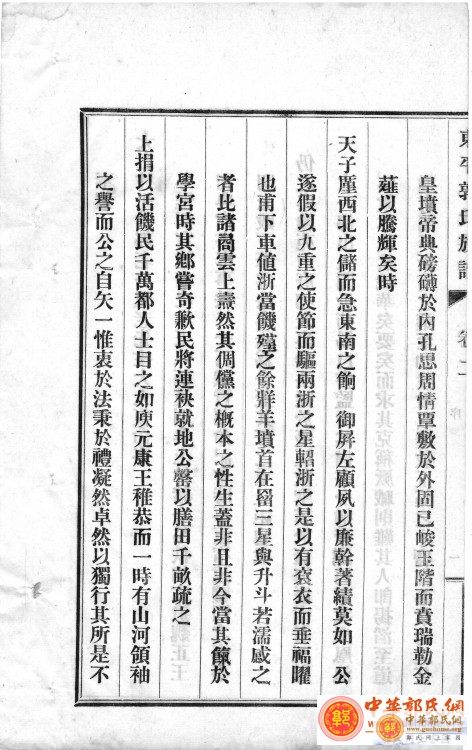 郭氏族譜
皇墳帝典磅礴於內孔思周情覃敷於外固已峻玉階而賁瑞勒金
薤以騰輝矣時
天子厪西北之儲而急東南之餉 御屏左顧夙以廉幹著績莫如 公
遂假以九重之使節而驅兩浙之星軺浙之是以有袞衣而垂福曜
也甫下車値浙當饑殣之餘牂羊墳首在罶三星與升斗若濡感之
者比諸雲上壽然其倜儻之槪本之性生蓋非且非今當其餼於
學宮時其鄕嘗奇歉民將連袂就地公罄以膳田千畝疏之
上捐以活饑民千萬都人士目之如庾元康王稚恭而一時有山河領袖
之譽而公之自矢一惟衷於法秉於禮凝然卓然以獨行其所是不
中華郭氏网
中華郭氏網
www.guohome.org